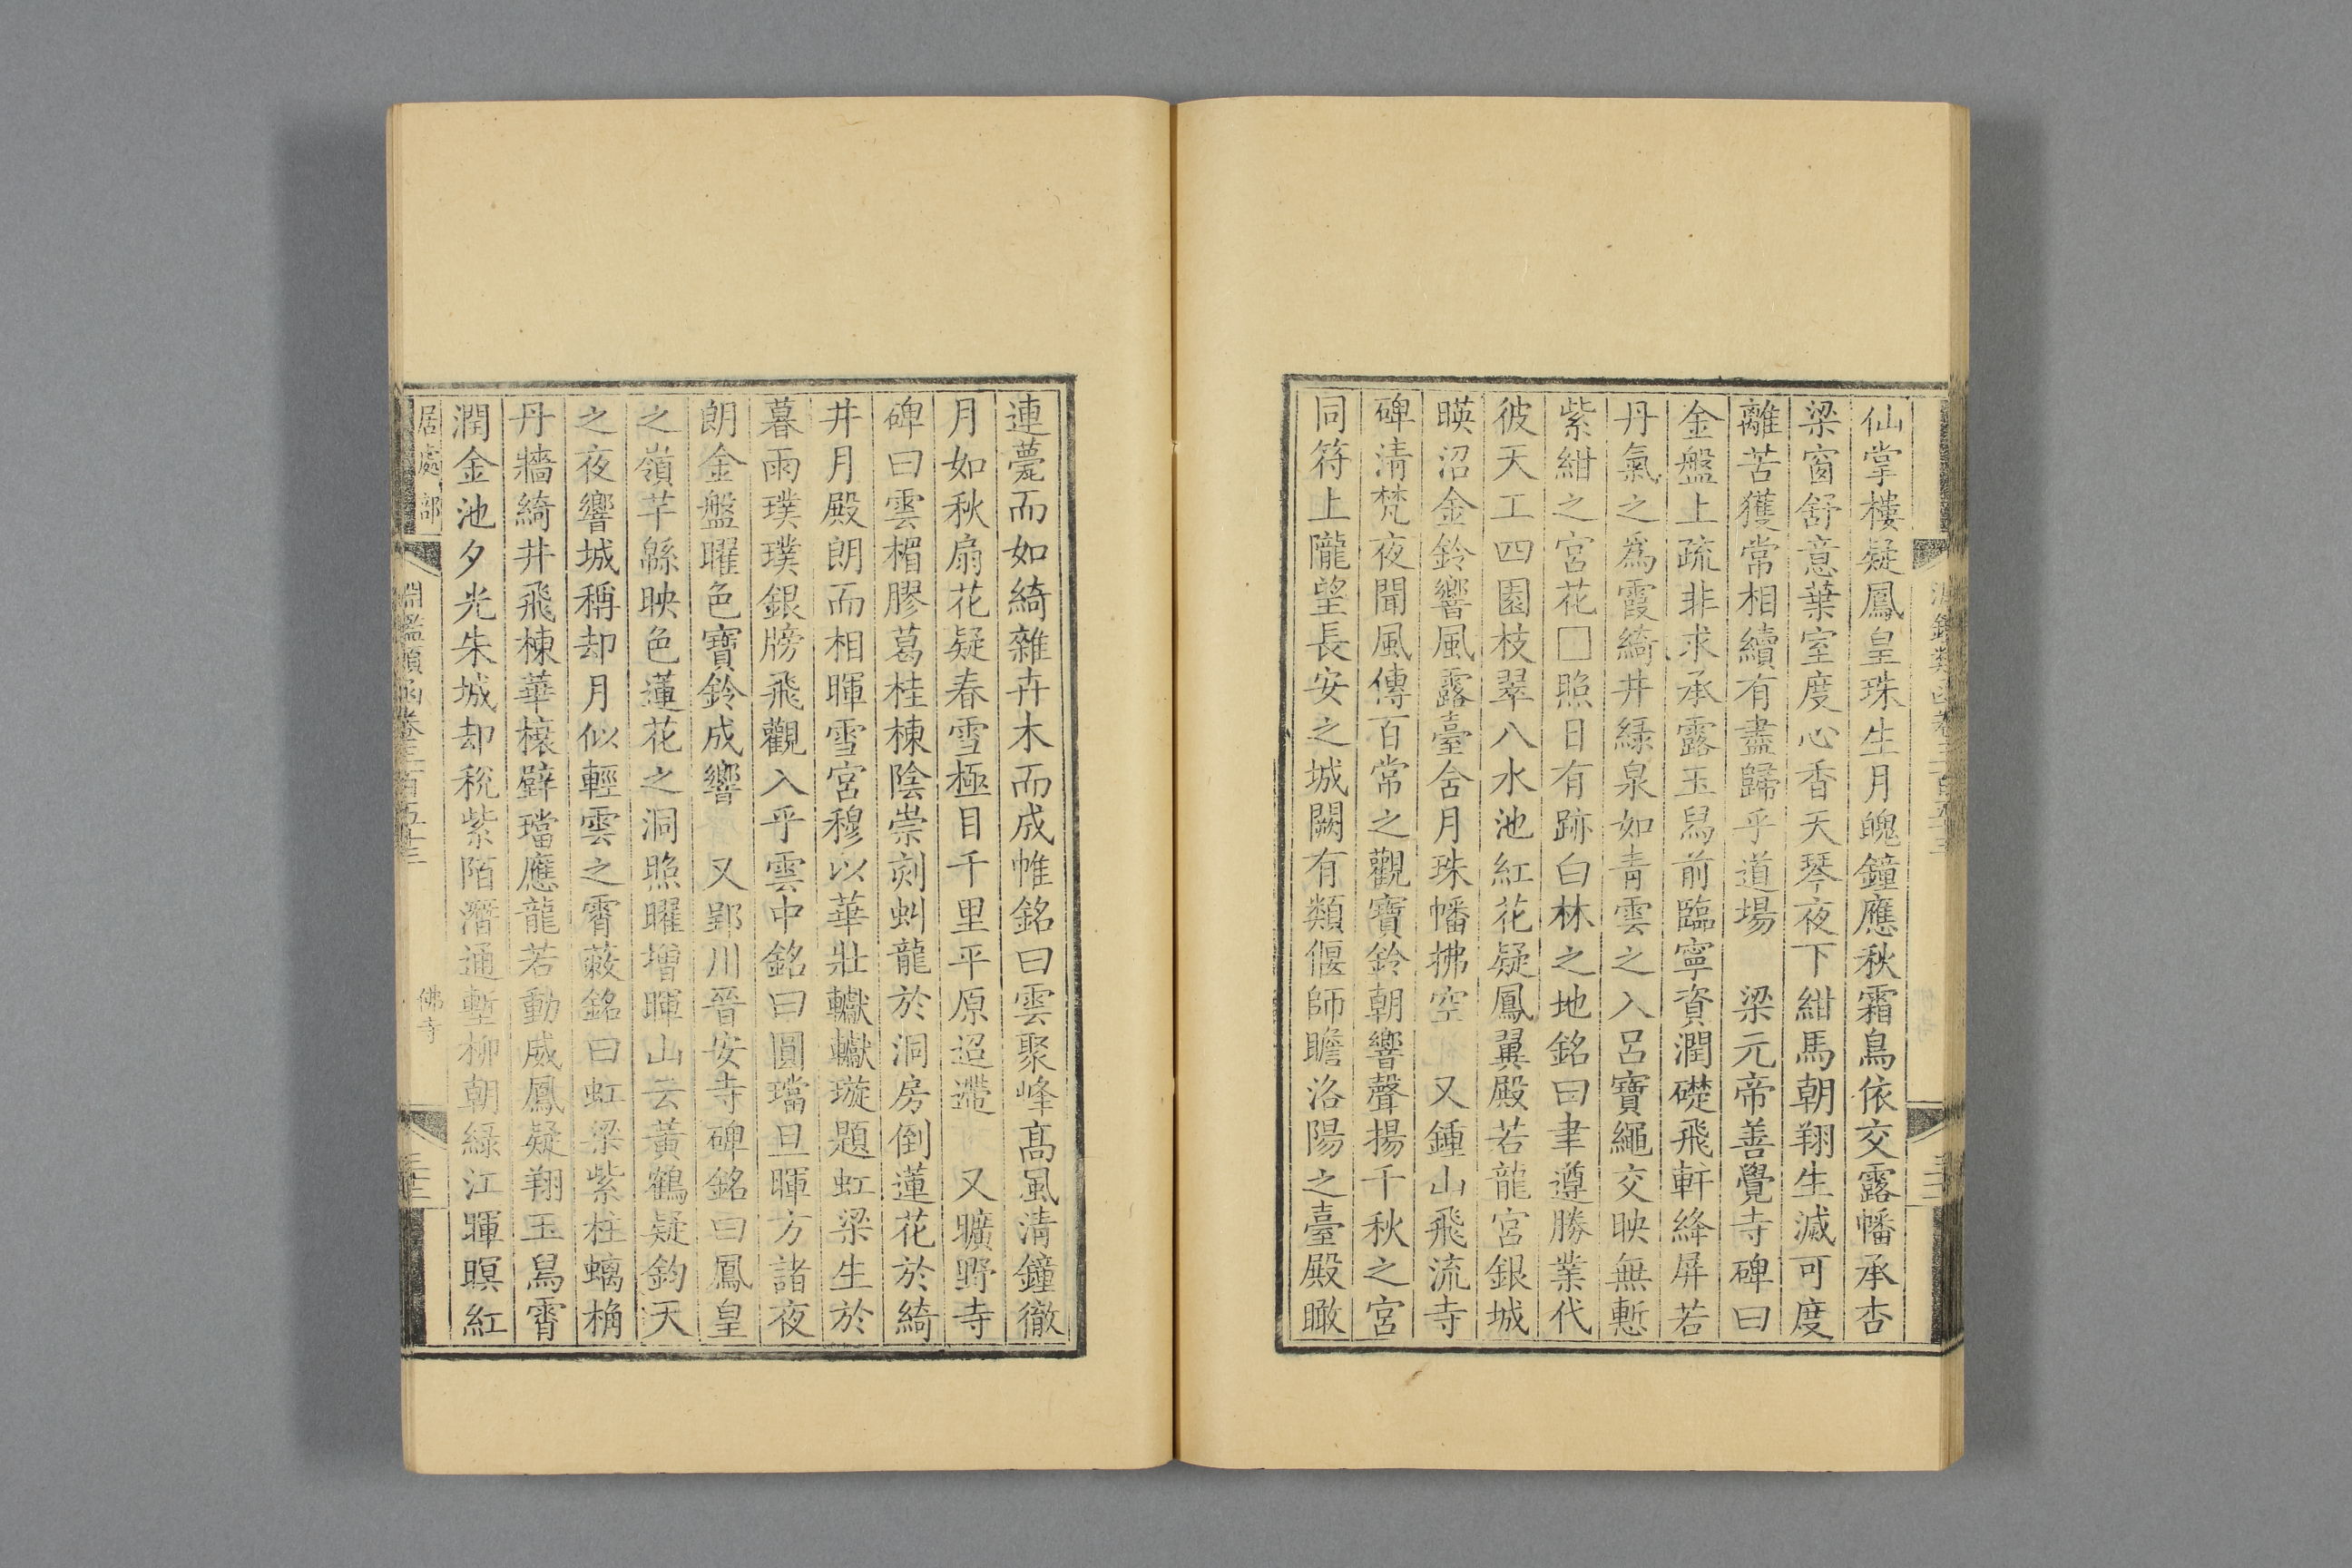 仙掌樓疑鳳皇珠生月魄鐘應秋霜鳥依交露幡承杏
梁窗舒意葉室度心香天琴夜下紺馬朝翔生滅可度
離苦獲常相續有盡歸乎道場　梁元帝善覺寺碑曰
金盤上疏非求承露玉舄前臨寧資潤礎飛軒絳屏若
丹氣之爲霞綺井綠泉如青雲之入呂寶繩交映無慙
紫紺之宮花□照日有跡白林之地銘曰聿遵勝業代
彼天工四園枝翠八水池紅花疑鳳翼殿若龍宮銀城
暎沼金鈴響風露臺含月珠幡拂空　又鍾山飛流寺
碑清梵夜聞風傳百常之觀寶鈴朝響聲揚千秋之宮
同符上隴望長安之城闕有類偃師瞻洛陽之臺殿瞰
連薨而如綺雜卉木而成帷銘曰雲聚峰高風清鐘徹
月如秋扇花疑春雪極目千里平原迢遰　又曠野寺
碑曰雲楣膠葛桂棟陰崇刻虯龍於洞房倒蓮花於綺
井月殿朗而相暉雪宮穆以華壯轥轥璇題虹梁生於
暮雨璞璞銀牓飛觀入乎雲中銘曰圓璫旦暉方諸夜
朗金盤曜色寶鈴成響　又郢州晉安寺碑銘曰鳳皇
之嶺芊緜映色蓮花之洞照曜增暉山去黃鶴疑鈞天
之夜響城稱却月似輕雲之霄蔽銘曰虹梁紫柱螭桷
丹牆綺井飛棟華榱壁璫應龍若動威鳳疑翔玉舄霄
潤金池夕光朱城却稅紫陌潛通塹柳朝綠江暉暝紅
居處部　淵鑑類函卷三百五十三　佛寺